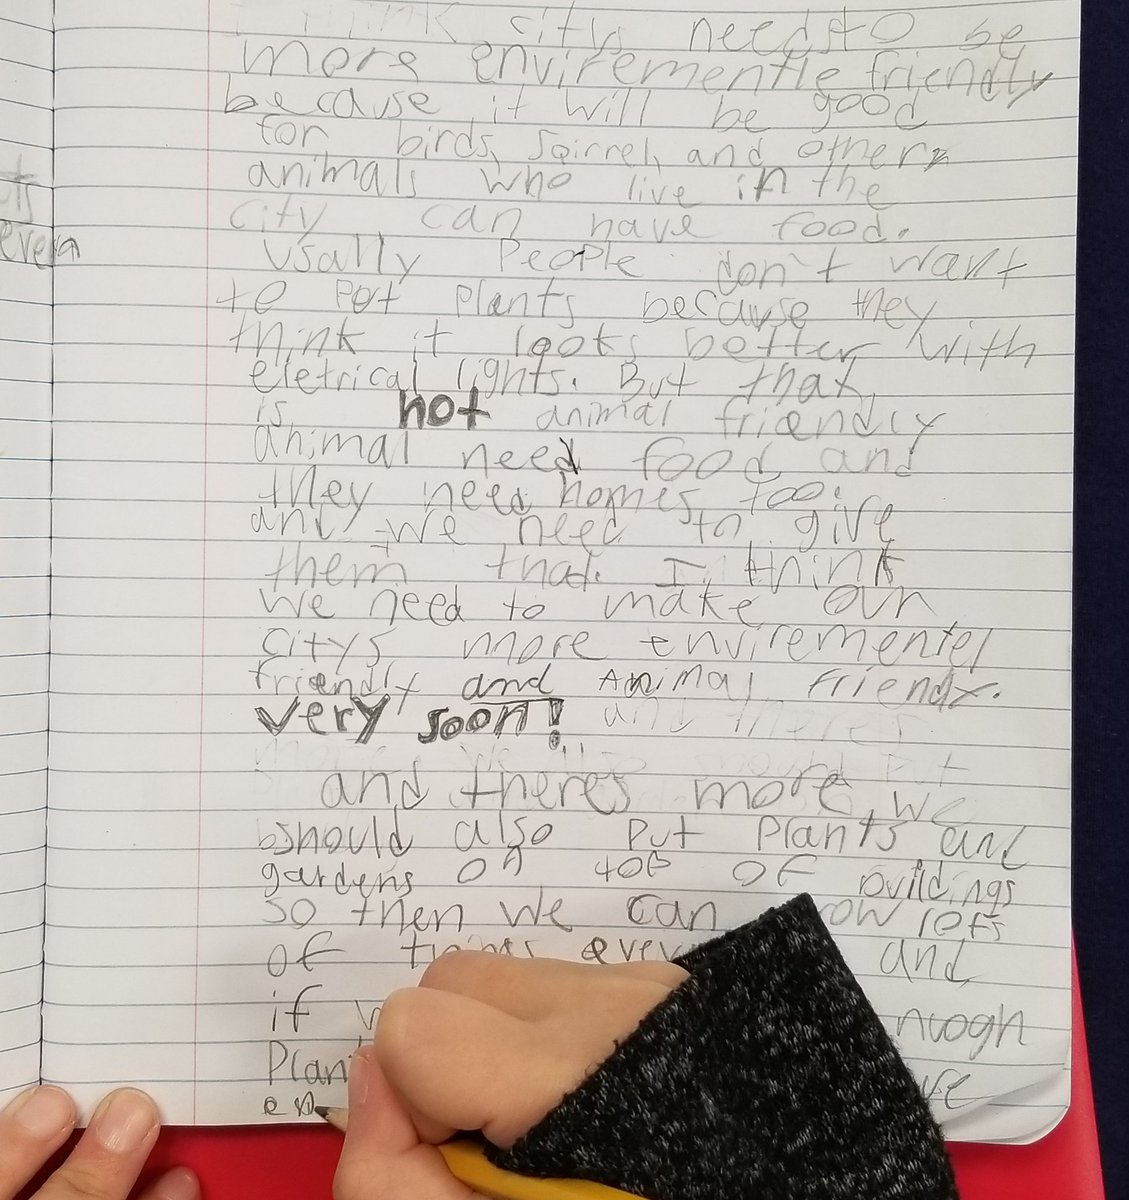 I think citys needs to be
more envirementle friendly
because it will be good
for birds, sqirrel, and other
animals who live in the
city can have food.
Usally People don't want
to pot plants because they
think it looks better with
eletrical lights. But that
is not animal friendly
animal need food and
they need homes too.
and we need to give
them that. I think
we need to make our
citys more enviremental
friendly and Animal Friendy.
very soon! and theres
and theres more we
should also put plants and
gardens on top of buildings
so then we can row lots
of things every and
if nuogh
Plant ve
en